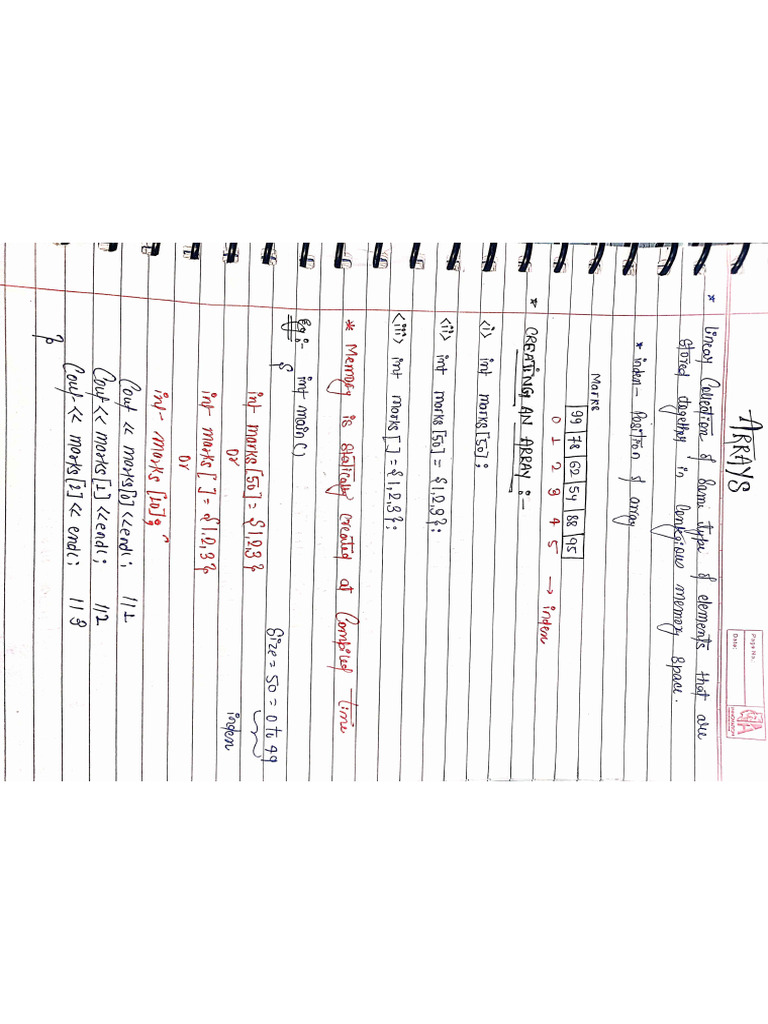 ARRAYS
Page No.:
Date:
* Linear Collection of Same type of elements that are
stored together in Contigious memory space.
* index - Position of array
Marks
99 78 62 54 88 95
0 1 2 3 4 5 → index
* CREATING AN ARRAY :-
<i> int marks[50];
<ii> int marks[50] = {1,2,3};
<iii> int marks[ ] = {1,2,3};
* Memory is statically created at Compiled time
Eg:- int main()
{
Size = 50 = 0 to 49
index
int marks[50] = {1,2,3}
Or
int marks[ ] = {1,2,3}
Or
int marks[10];
Cout << marks[0] << endl; //1
Cout << marks[1] << endl; //2
Cout << marks[2] << endl; //3
}